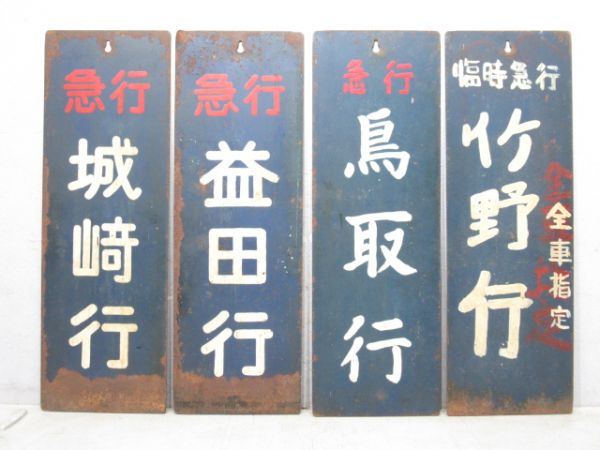 急行
城崎行
急行
益田行
急行
鳥取行
臨時急行
竹野行
全車指定